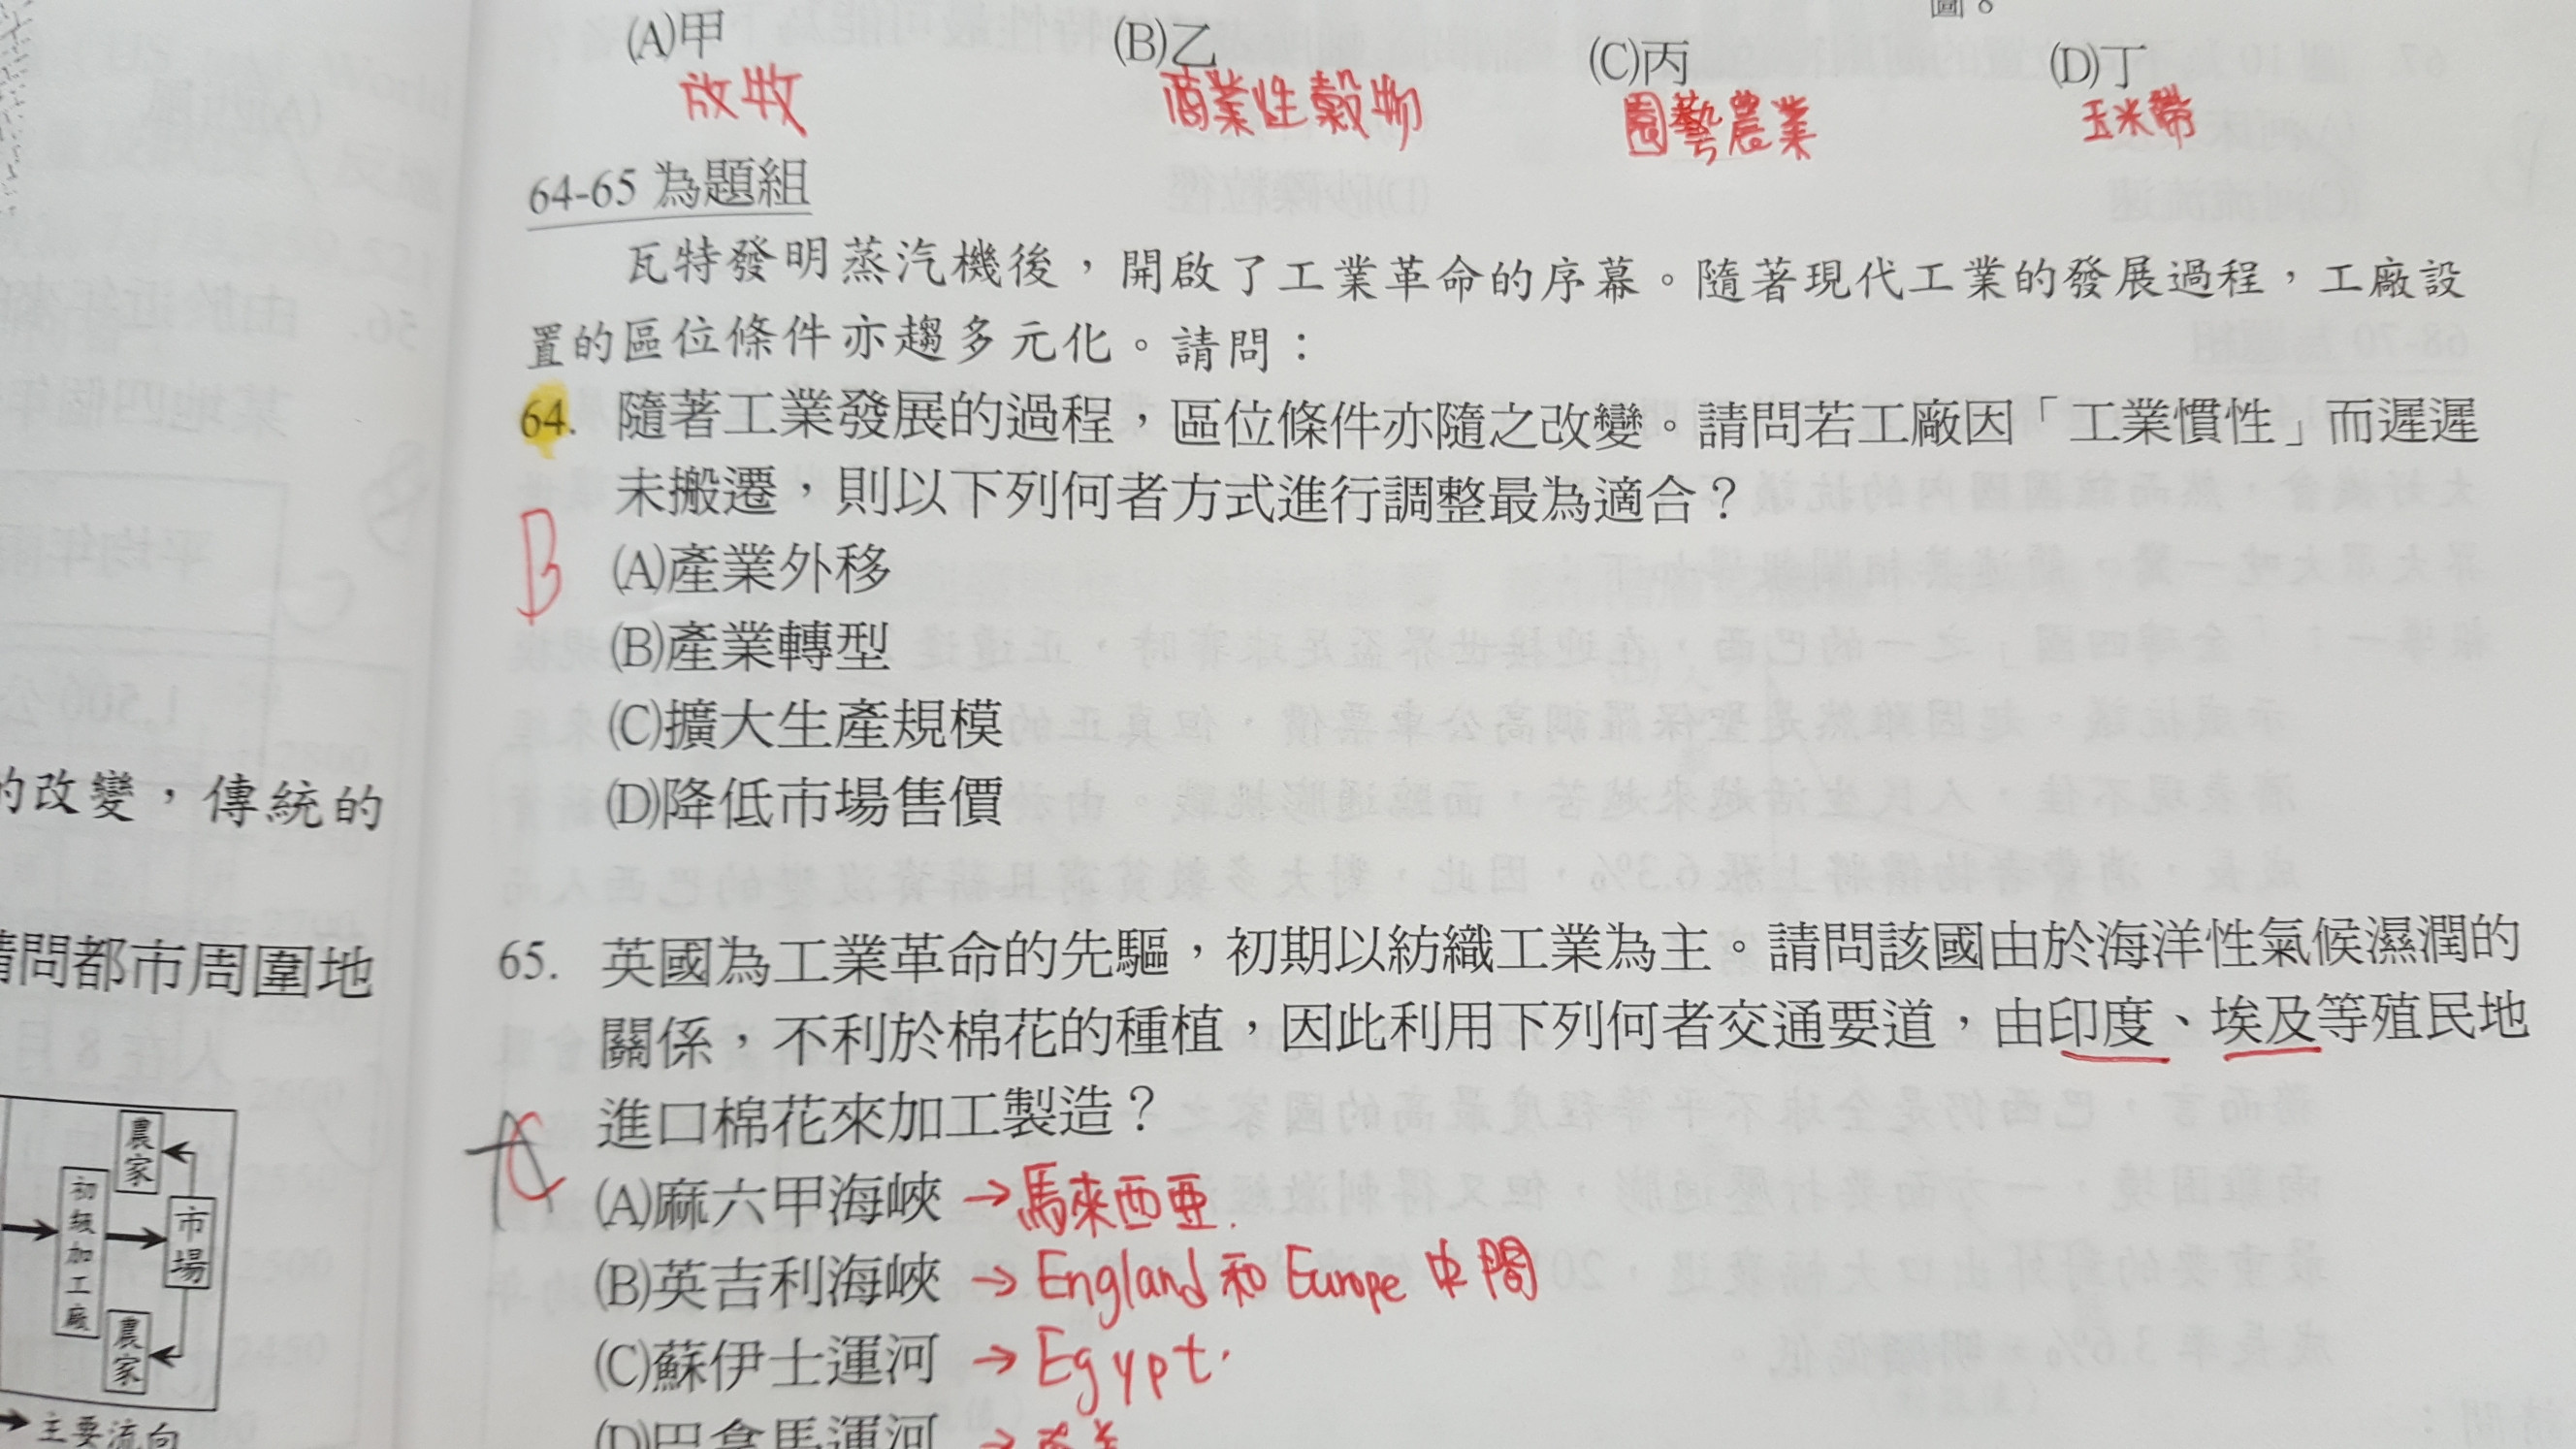 圖。
(A)甲 (B)乙 (C)丙 (D)丁
放牧 商業性穀物 園藝農業 玉米帶
64-65 為題組
瓦特發明蒸汽機後，開啟了工業革命的序幕。隨著現代工業的發展過程，工廠設
置的區位條件亦趨多元化。請問：
64. 隨著工業發展的過程，區位條件亦隨之改變。請問若工廠因「工業慣性」而遲遲
未搬遷，則以下列何者方式進行調整最為適合？
B
(A)產業外移
(B)產業轉型
(C)擴大生產規模
(D)降低市場售價
65. 英國為工業革命的先驅，初期以紡織工業為主。請問該國由於海洋性氣候濕潤的
關係，不利於棉花的種植，因此利用下列何者交通要道，由印度、埃及等殖民地
進口棉花來加工製造？
A C
(A)麻六甲海峽 →馬來西亞.
(B)英吉利海峽 → England 和 Europe 中間
(C)蘇伊士運河 → Egypt.
(D)巴拿馬運河 →
的改變，傳統的
請問都市周圍地
農家
初級加工廠
市場
農家
主要流向